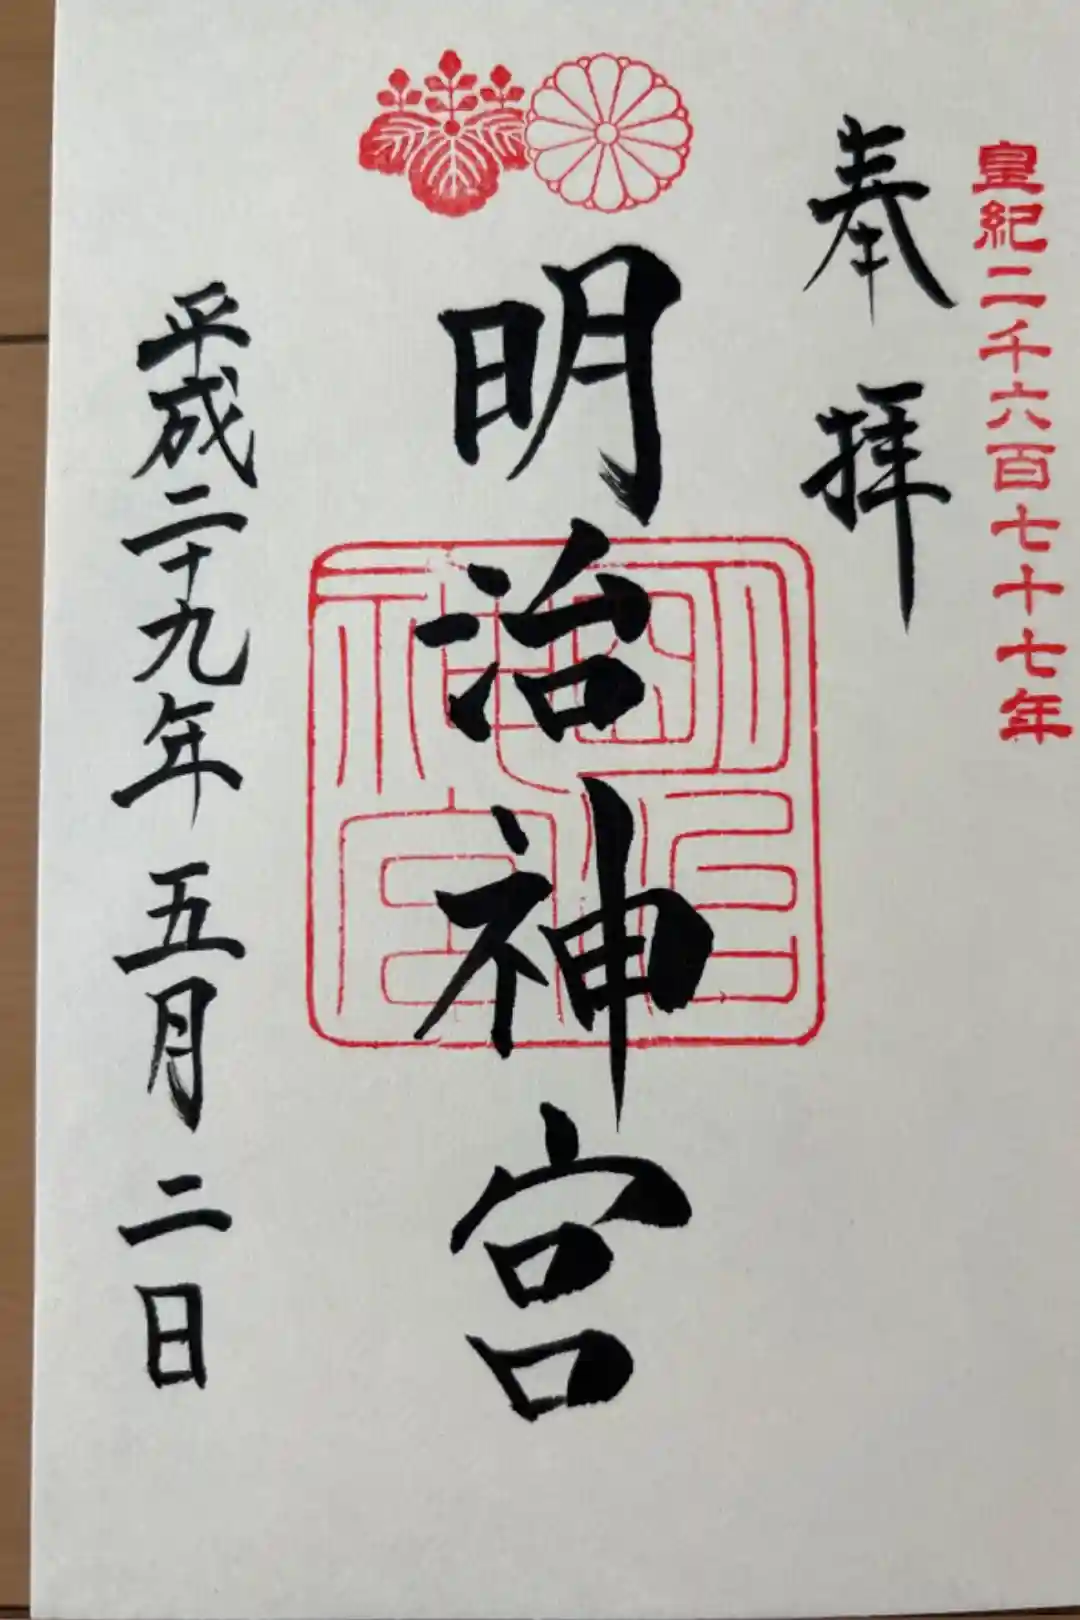 皇紀二千六百七十七年
奉拝
明治神宮
明治神宮
平成二十九年五月二日